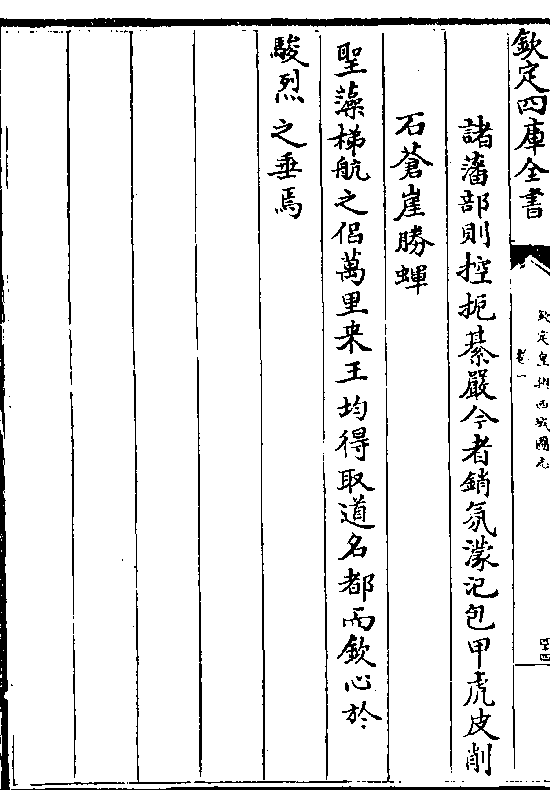 欽定四庫全書
欽定皇輿西域圖志
卷一
四十四
諸藩部則控扼綦嚴今者銷氛濛汜包甲虎皮削
石蒼崖勝蟬
聖藻梯航之侣萬里来王均得取道名都而欽心於
駿烈之垂焉